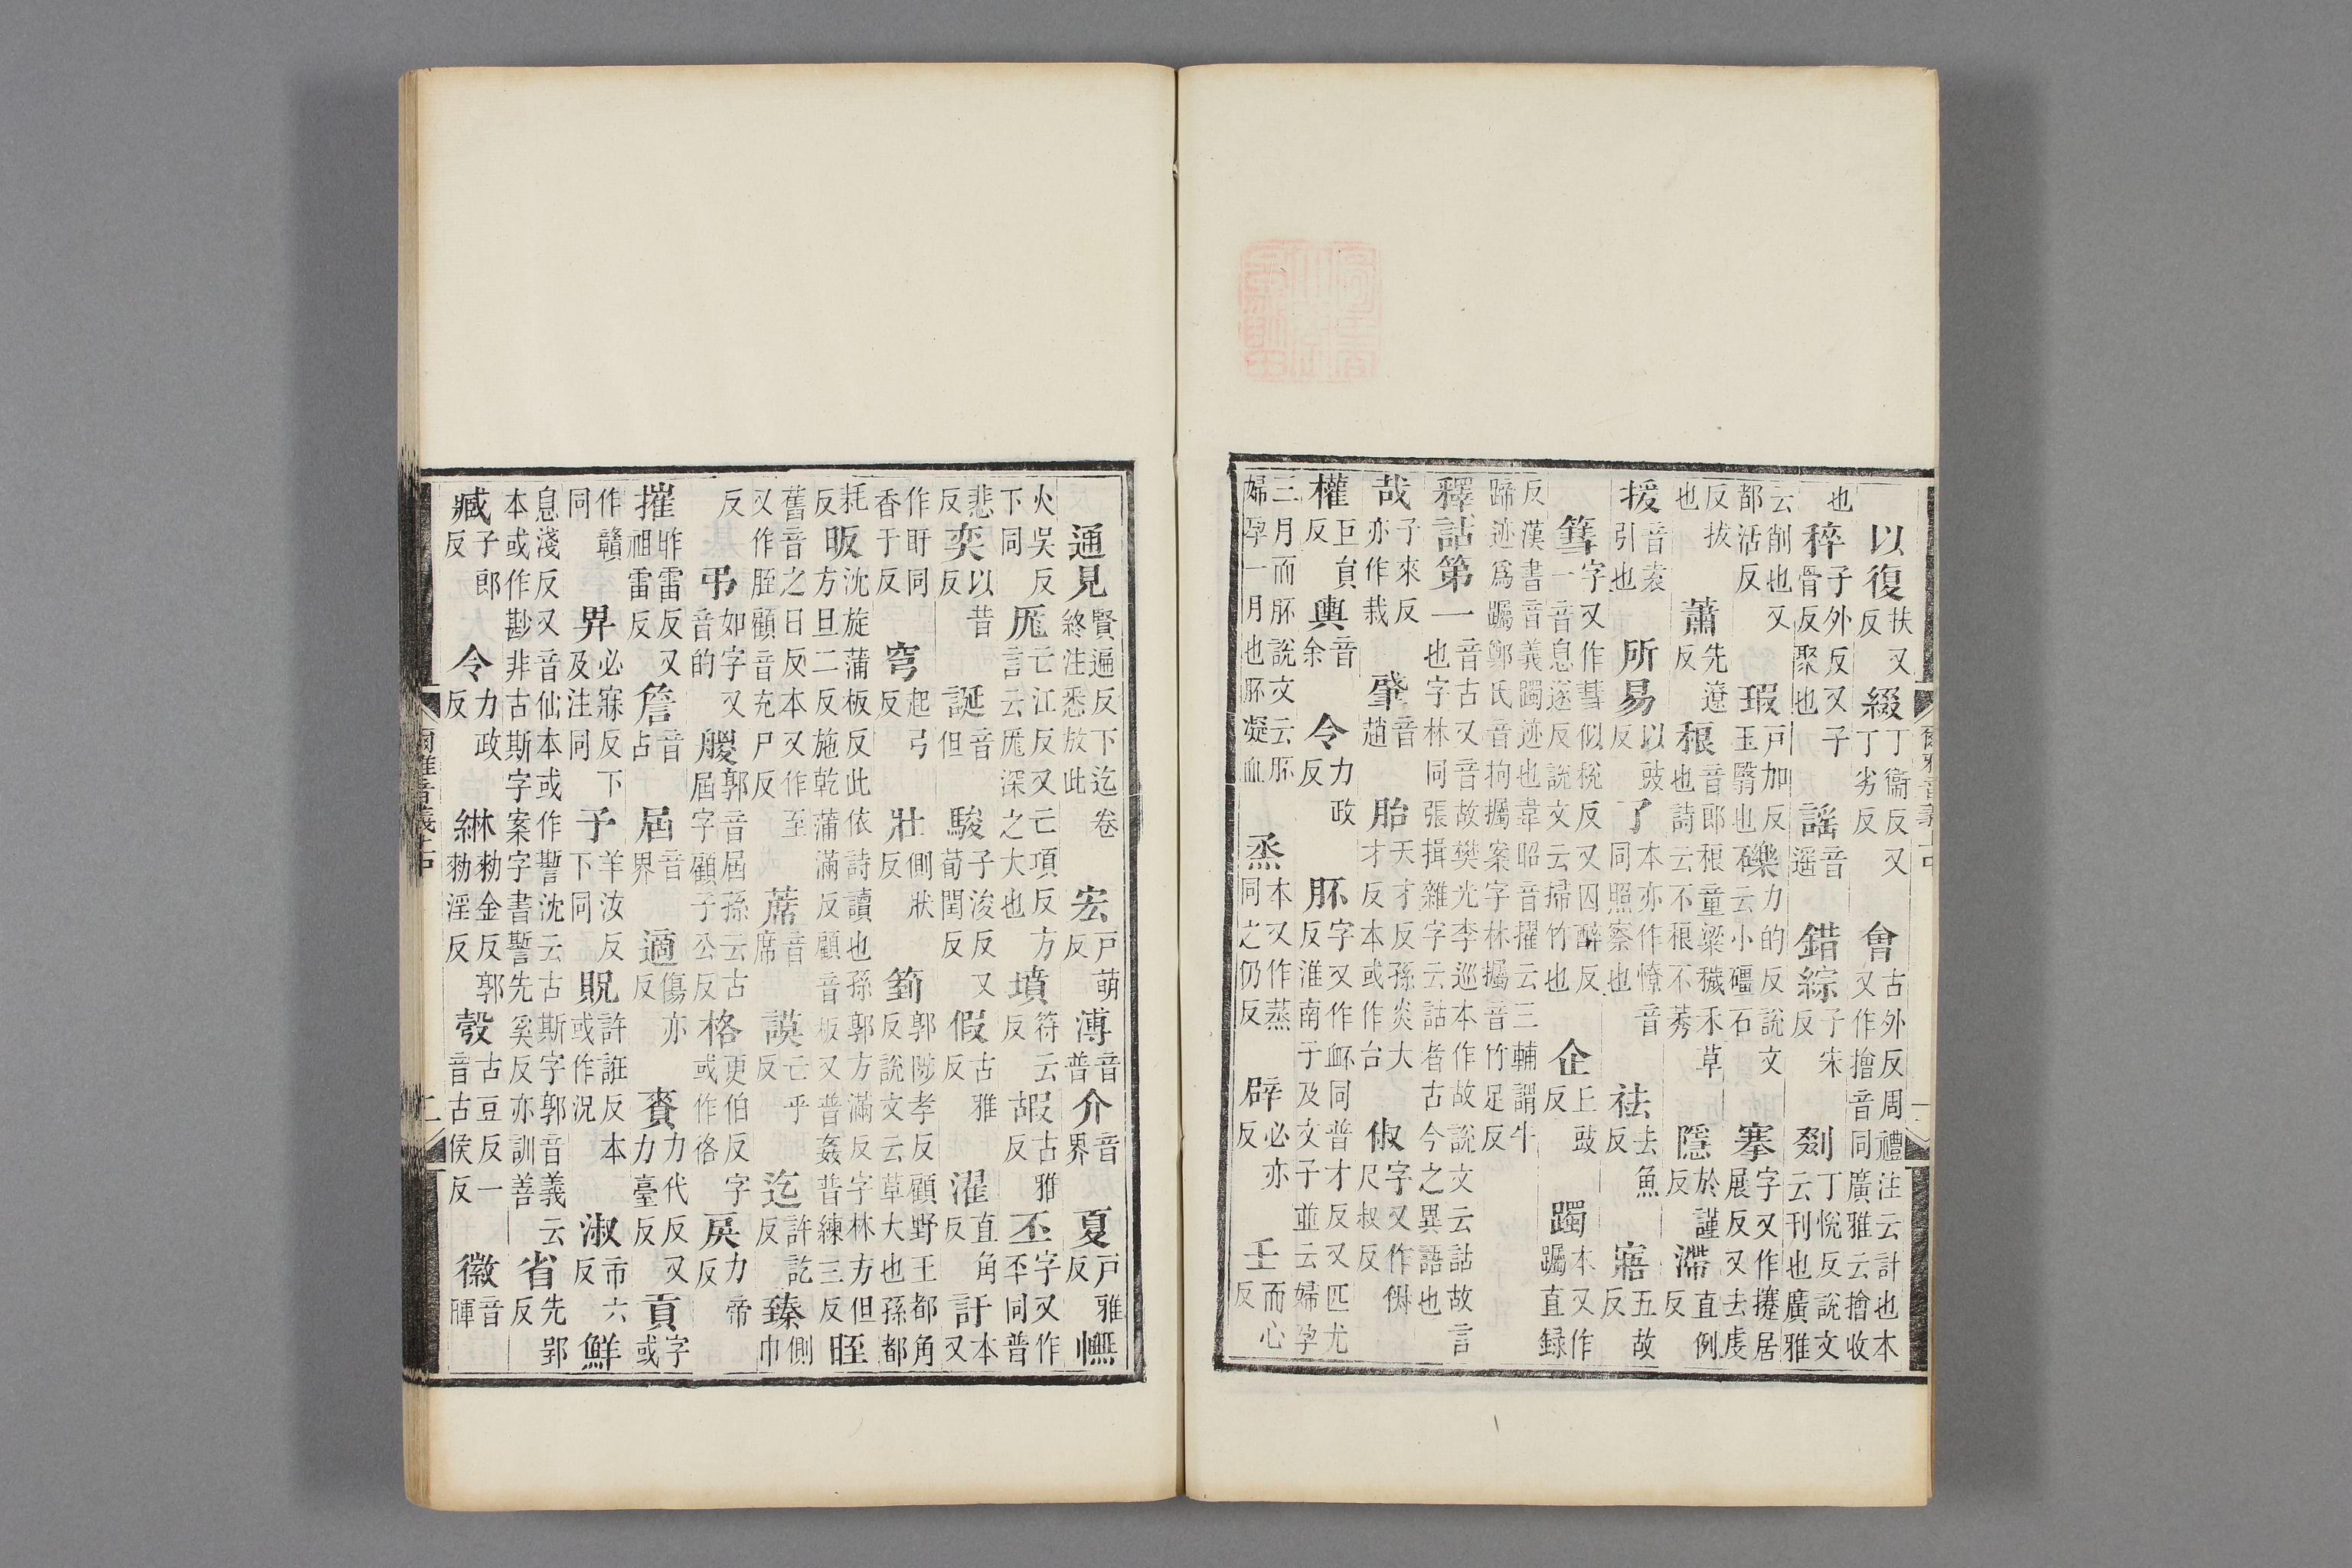 以復扶又反綴丁衞反又丁劣反會古外反周禮注云計也本又作檜音同廣雅云檜收
也稡子外反又子骨反聚也謠音遥錯綜子宋反剟丁悅反說文云刊也廣雅
云削也又都活反瑕戶加反玉翳也礫力的反說文云小礓石搴字又作攓居展反又去虔
反拔也蕭先遼反稂音郎稂童粱穢禾草也詩云不稂不莠隱於謹反滯直例反
援音袁引也所易以豉反了本亦作憭音同照察也祛去魚反寤五故反
篲字又作彗似稅反又囚醉反一音息遂反說文云掃竹也企丘豉反躅本又作躅直録
反漢書音義躅迹也韋昭音擢云三輔謂牛蹄迹爲躅鄭氏音拘攡案字林攡音竹足反
釋詁第一音古又音故樊光李巡本作故說文云詁故言也字林同張揖雜字云詁者古今之異語也
哉子來反亦作栽肇音趙胎天才反孫炎大才反本或作台俶字又作尺叔反
權巨貟反輿音余令力政反胚字又作衃同普才反又匹尤反淮南子及文子並云婦孕
三月而胚說文云胚婦孕一月也胚凝血烝本又作蒸同之仍反辟必亦反壬而心反
爾雅音義上中
通見賢遍反下迄卷終注悉放此宏戶萌反溥音普介音界夏戶雅反幠
火吳反下同厖亡江反又亡項反方言云厖深之大也墳符云反嘏古雅反丕字又作㔻同普
悲反奕以昔反誕音但駿子浚反又荀閏反假古雅反濯直角反訏本又
作盱同香于反穹起弓反壯側狀反箌郭陟孝反顧野王都角反說文云草大也孫都
耗反昄沈旋蒲板反此依詩讀也孫郭方滿反字林方但反方旦二反施乾蒲滿反顧音板又普姦普練三反晊
舊音之日反本又作至又作胵顧音充尸反蓆音席謨亡乎反迄許訖反臻側巾
反弔如字又音的艐郭音屆孫云古屆字顧子公反格更伯反字或作佫戾力帝反
摧昨雷反又祖雷反詹音占屆音界適傷亦反賚力代反又力臺反貢字或
作贛同畀必寐反下及注同予羊汝反下同貺許誑反本或作況淑市六反鮮
息淺反又音仙本或作誓沈云古斯字郭音義云本或作尠非古斯字案字書誓先奚反亦訓善省先郢反
臧子郎反令力政反綝勑金反郭勑淫反彀古豆反一音古侯反徽音暉
爾雅音義上中 二